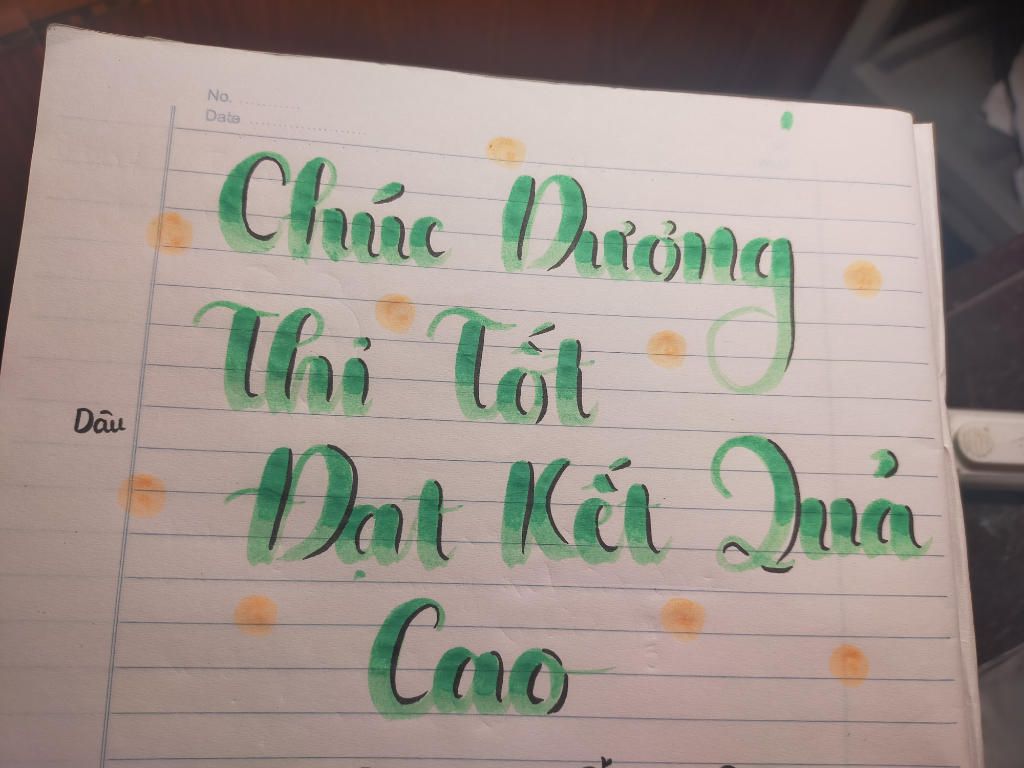 No. ............
Date ........................
Chúc Dưởng
Thi Tốt
Dâu
Đạt Kết Quả
Cao